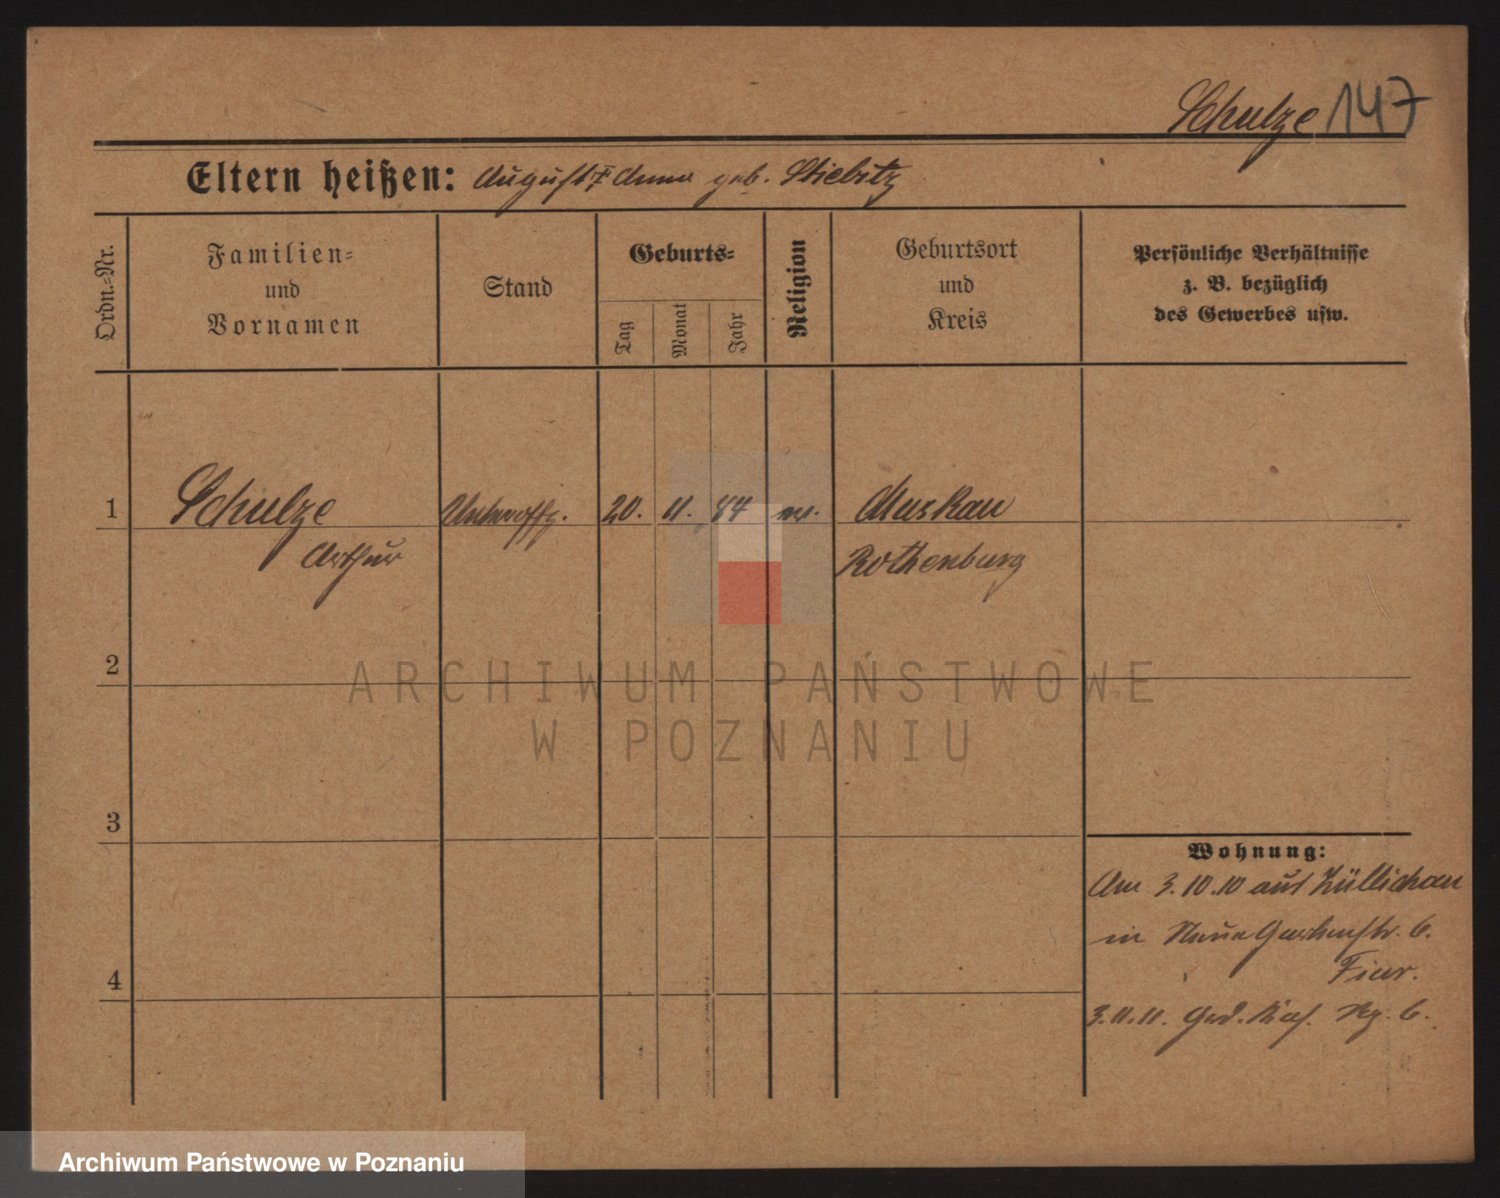 Schulze 147
Eltern heißen: August u. Anna geb. Stiebitz
Ordn.-Nr.
Familien-
und
Vornamen
Stand
Geburts-
Tag
Monat
Jahr
Religion
Geburtsort
und
Kreis
Persönliche Verhältnisse
z. B. bezüglich
des Gewerbes usw.
1
Schulze
Arthur
Unteroffz.
20.
11.
84
ev.
Muskau
Rothenburg
2
3
4
Wohnung:
Am 3.10.10 aus Züllichau
in Neue Gartenstr. 6.
3.11.11. 6.
ARCHIWUM PAŃSTWOWE
W POZNANIU
Archiwum Państwowe w Poznaniu